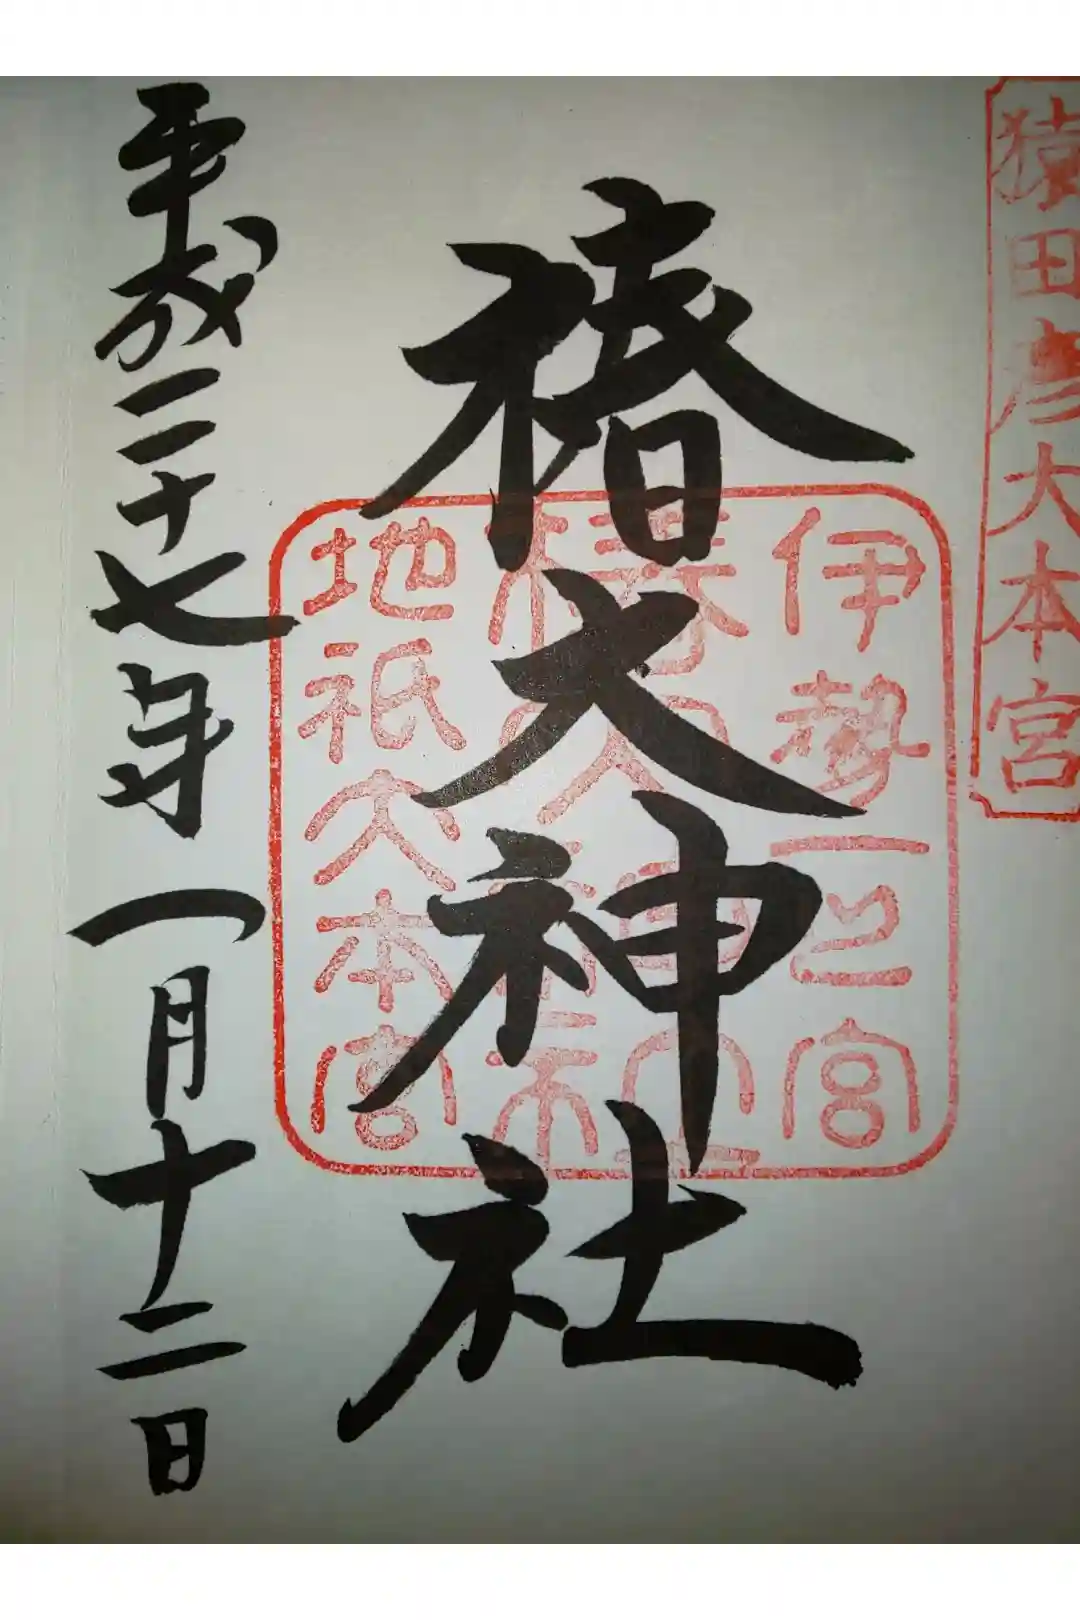 猿田彦大本宮
伊勢一之宮
椿大神社
椿大神社
地祇大本宮
平成二十七年一月十二日